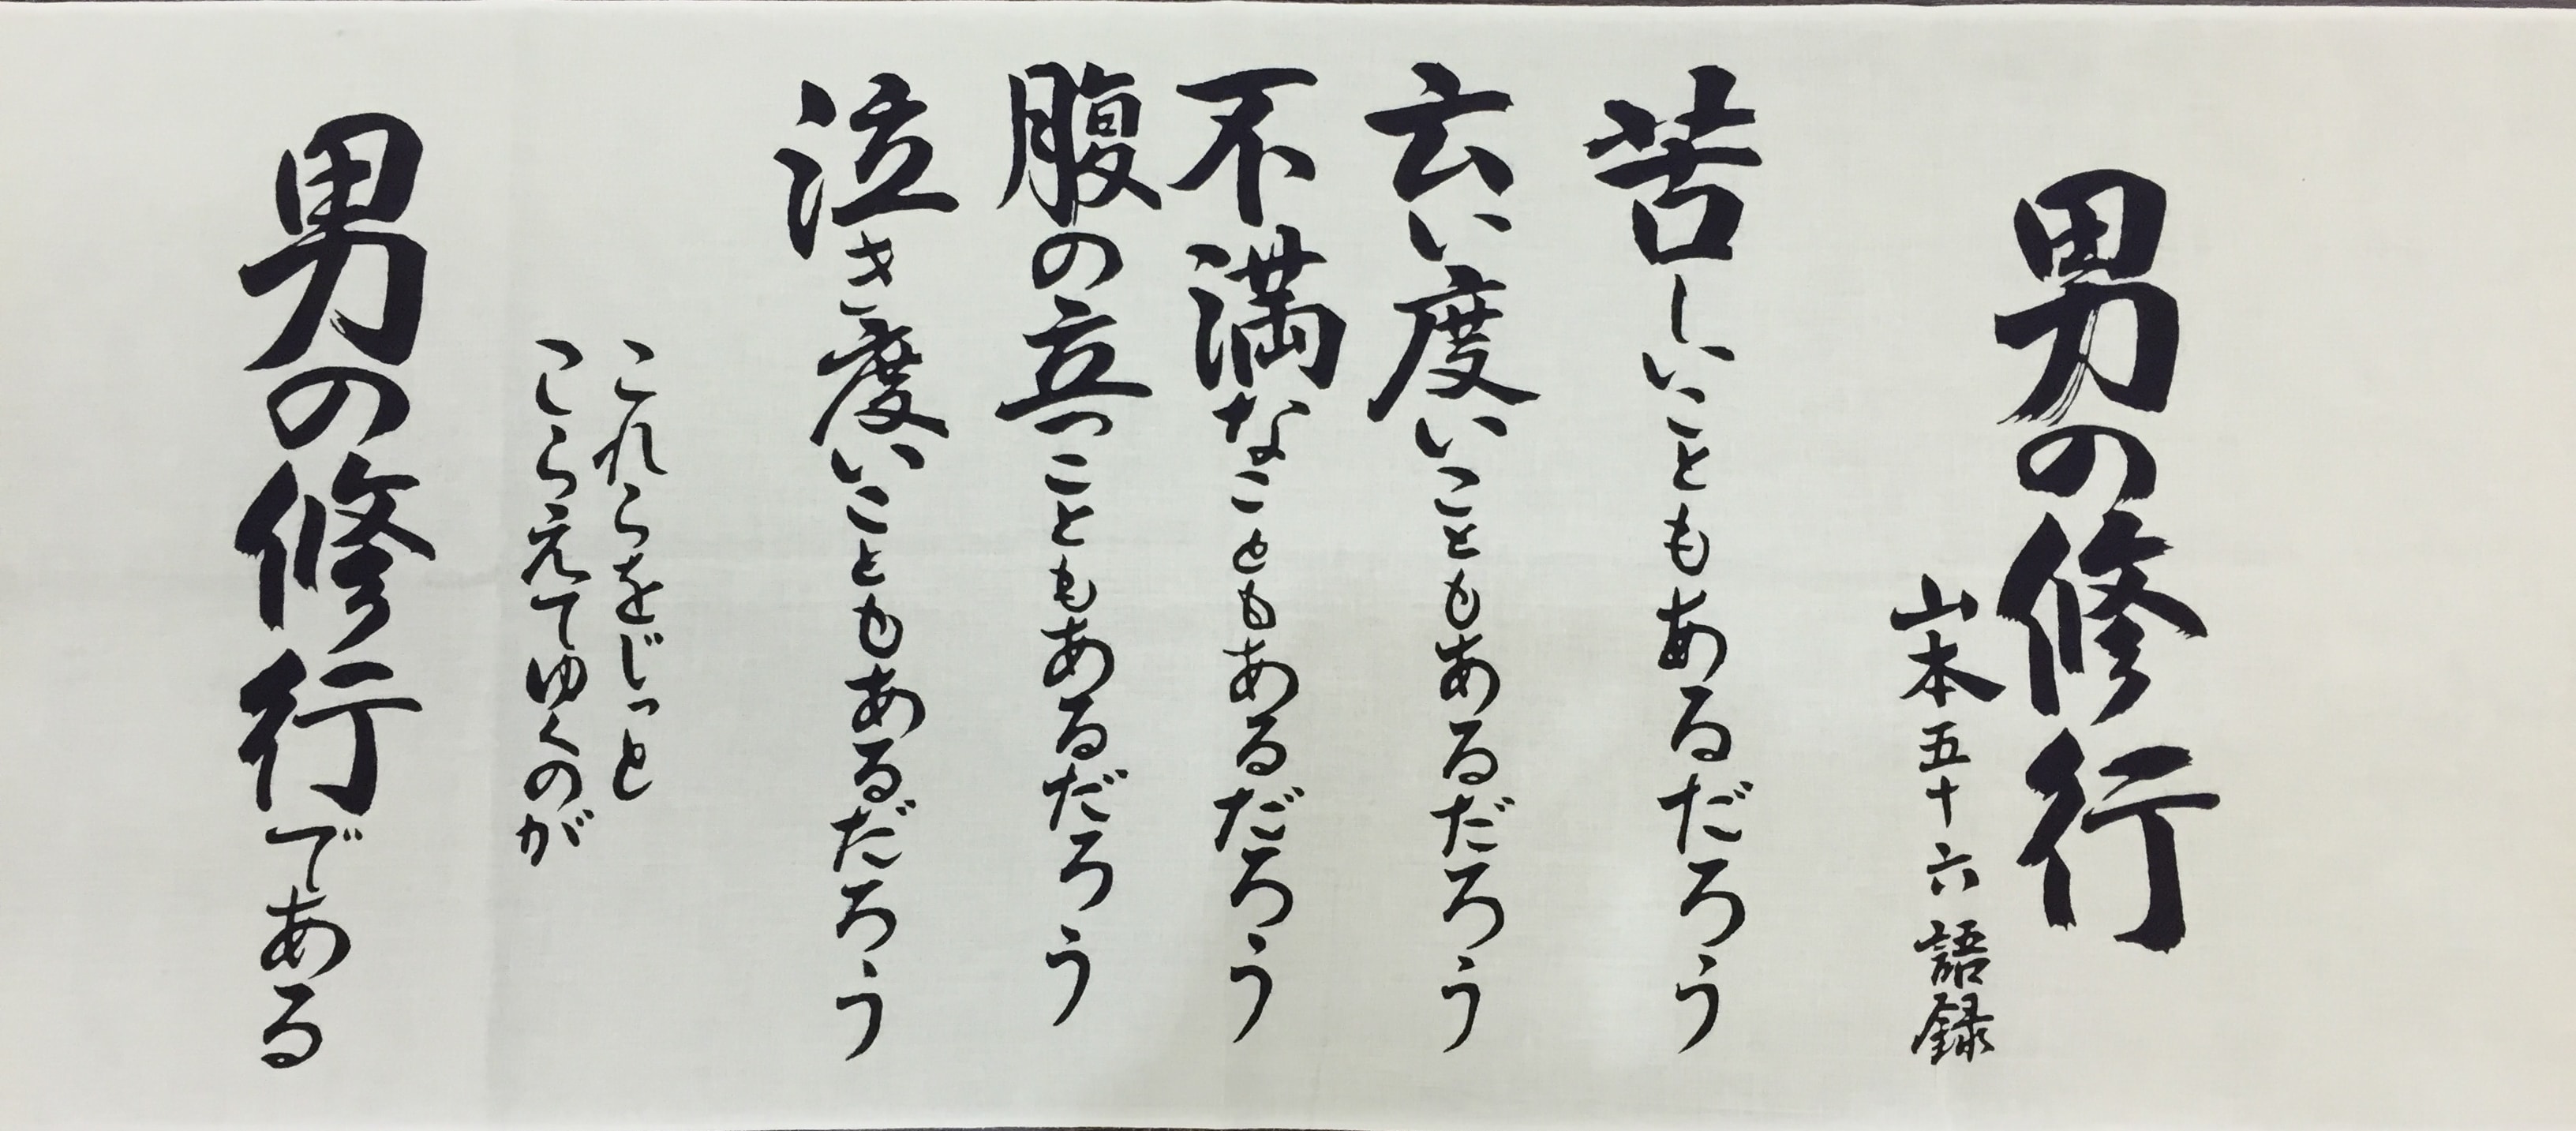 男の修行
山本五十六語録
苦しいこともあるだろう
云い度いこともあるだろう
不満なこともあるだろう
腹の立つこともあるだろう
泣き度いこともあるだろう
これらをじっと
こらえてゆくのが
男の修行である